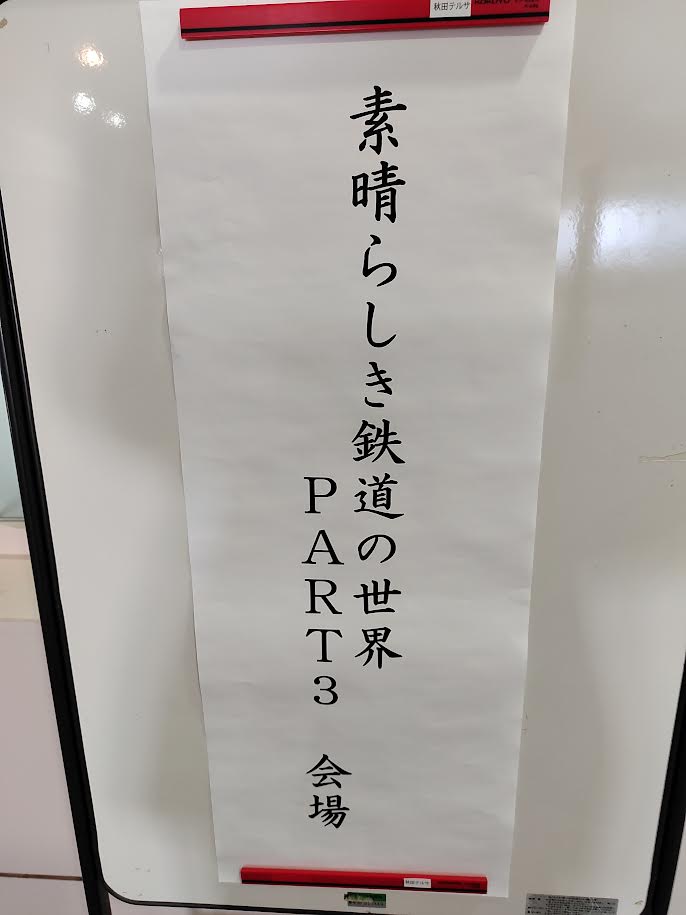 素晴らしき鉄道の世界
PART3 会場
秋田テルサ
秋田テルサ